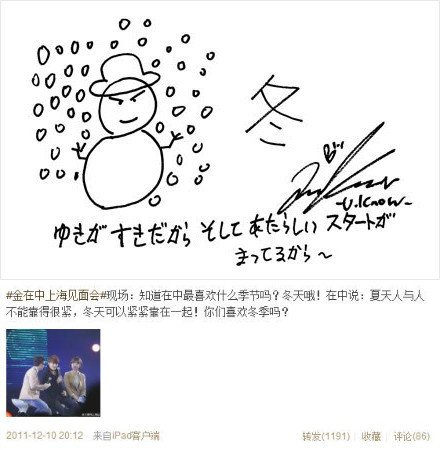 冬
-U.Know-
ゆきが すきだから そして あたらしい スタートが
まってるから～
#金在中上海见面会#现场：知道在中最喜欢什么季节吗？冬天哦！在中说：夏天人与人
不能靠得很紧，冬天可以紧紧靠在一起！你们喜欢冬季吗？
2011-12-10 20:12 来自iPad客户端
转发(1191) 收藏 评论(86)